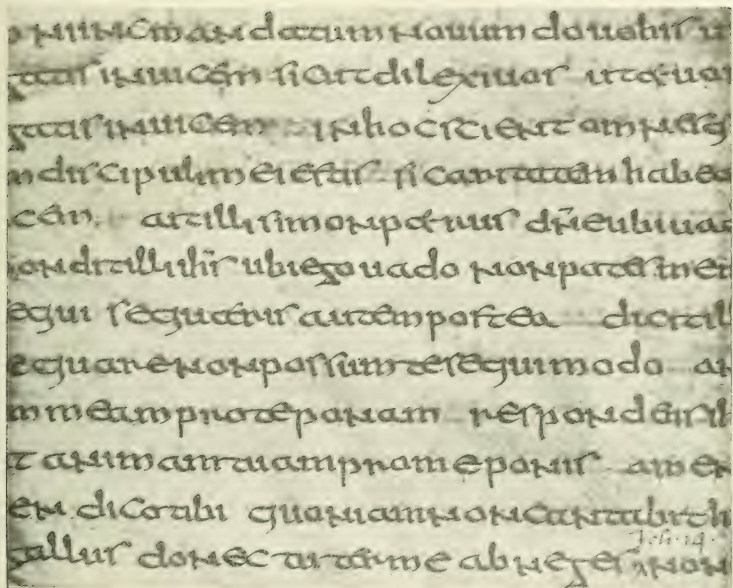 o nunc mandatum nouum do uobis ut
gatis inuicem sicut dilexi uos ut et uos
gatis inuicem in hoc scient omnes q
m discipuli mei estis si caritatem habea
cem ait illi simon petrus dn̄e ubi uad
ondit illi ihs̄ ubi ego uado non potes me
equi sequeris autem postea dicit ill
e quare non possum te sequi modo an
m meam pro te ponam respondit il
t animam tuam pro me ponis amen
en dico tibi quoniam non cantabit h
Joh. 14.
gallus donec tu ter me abneges non